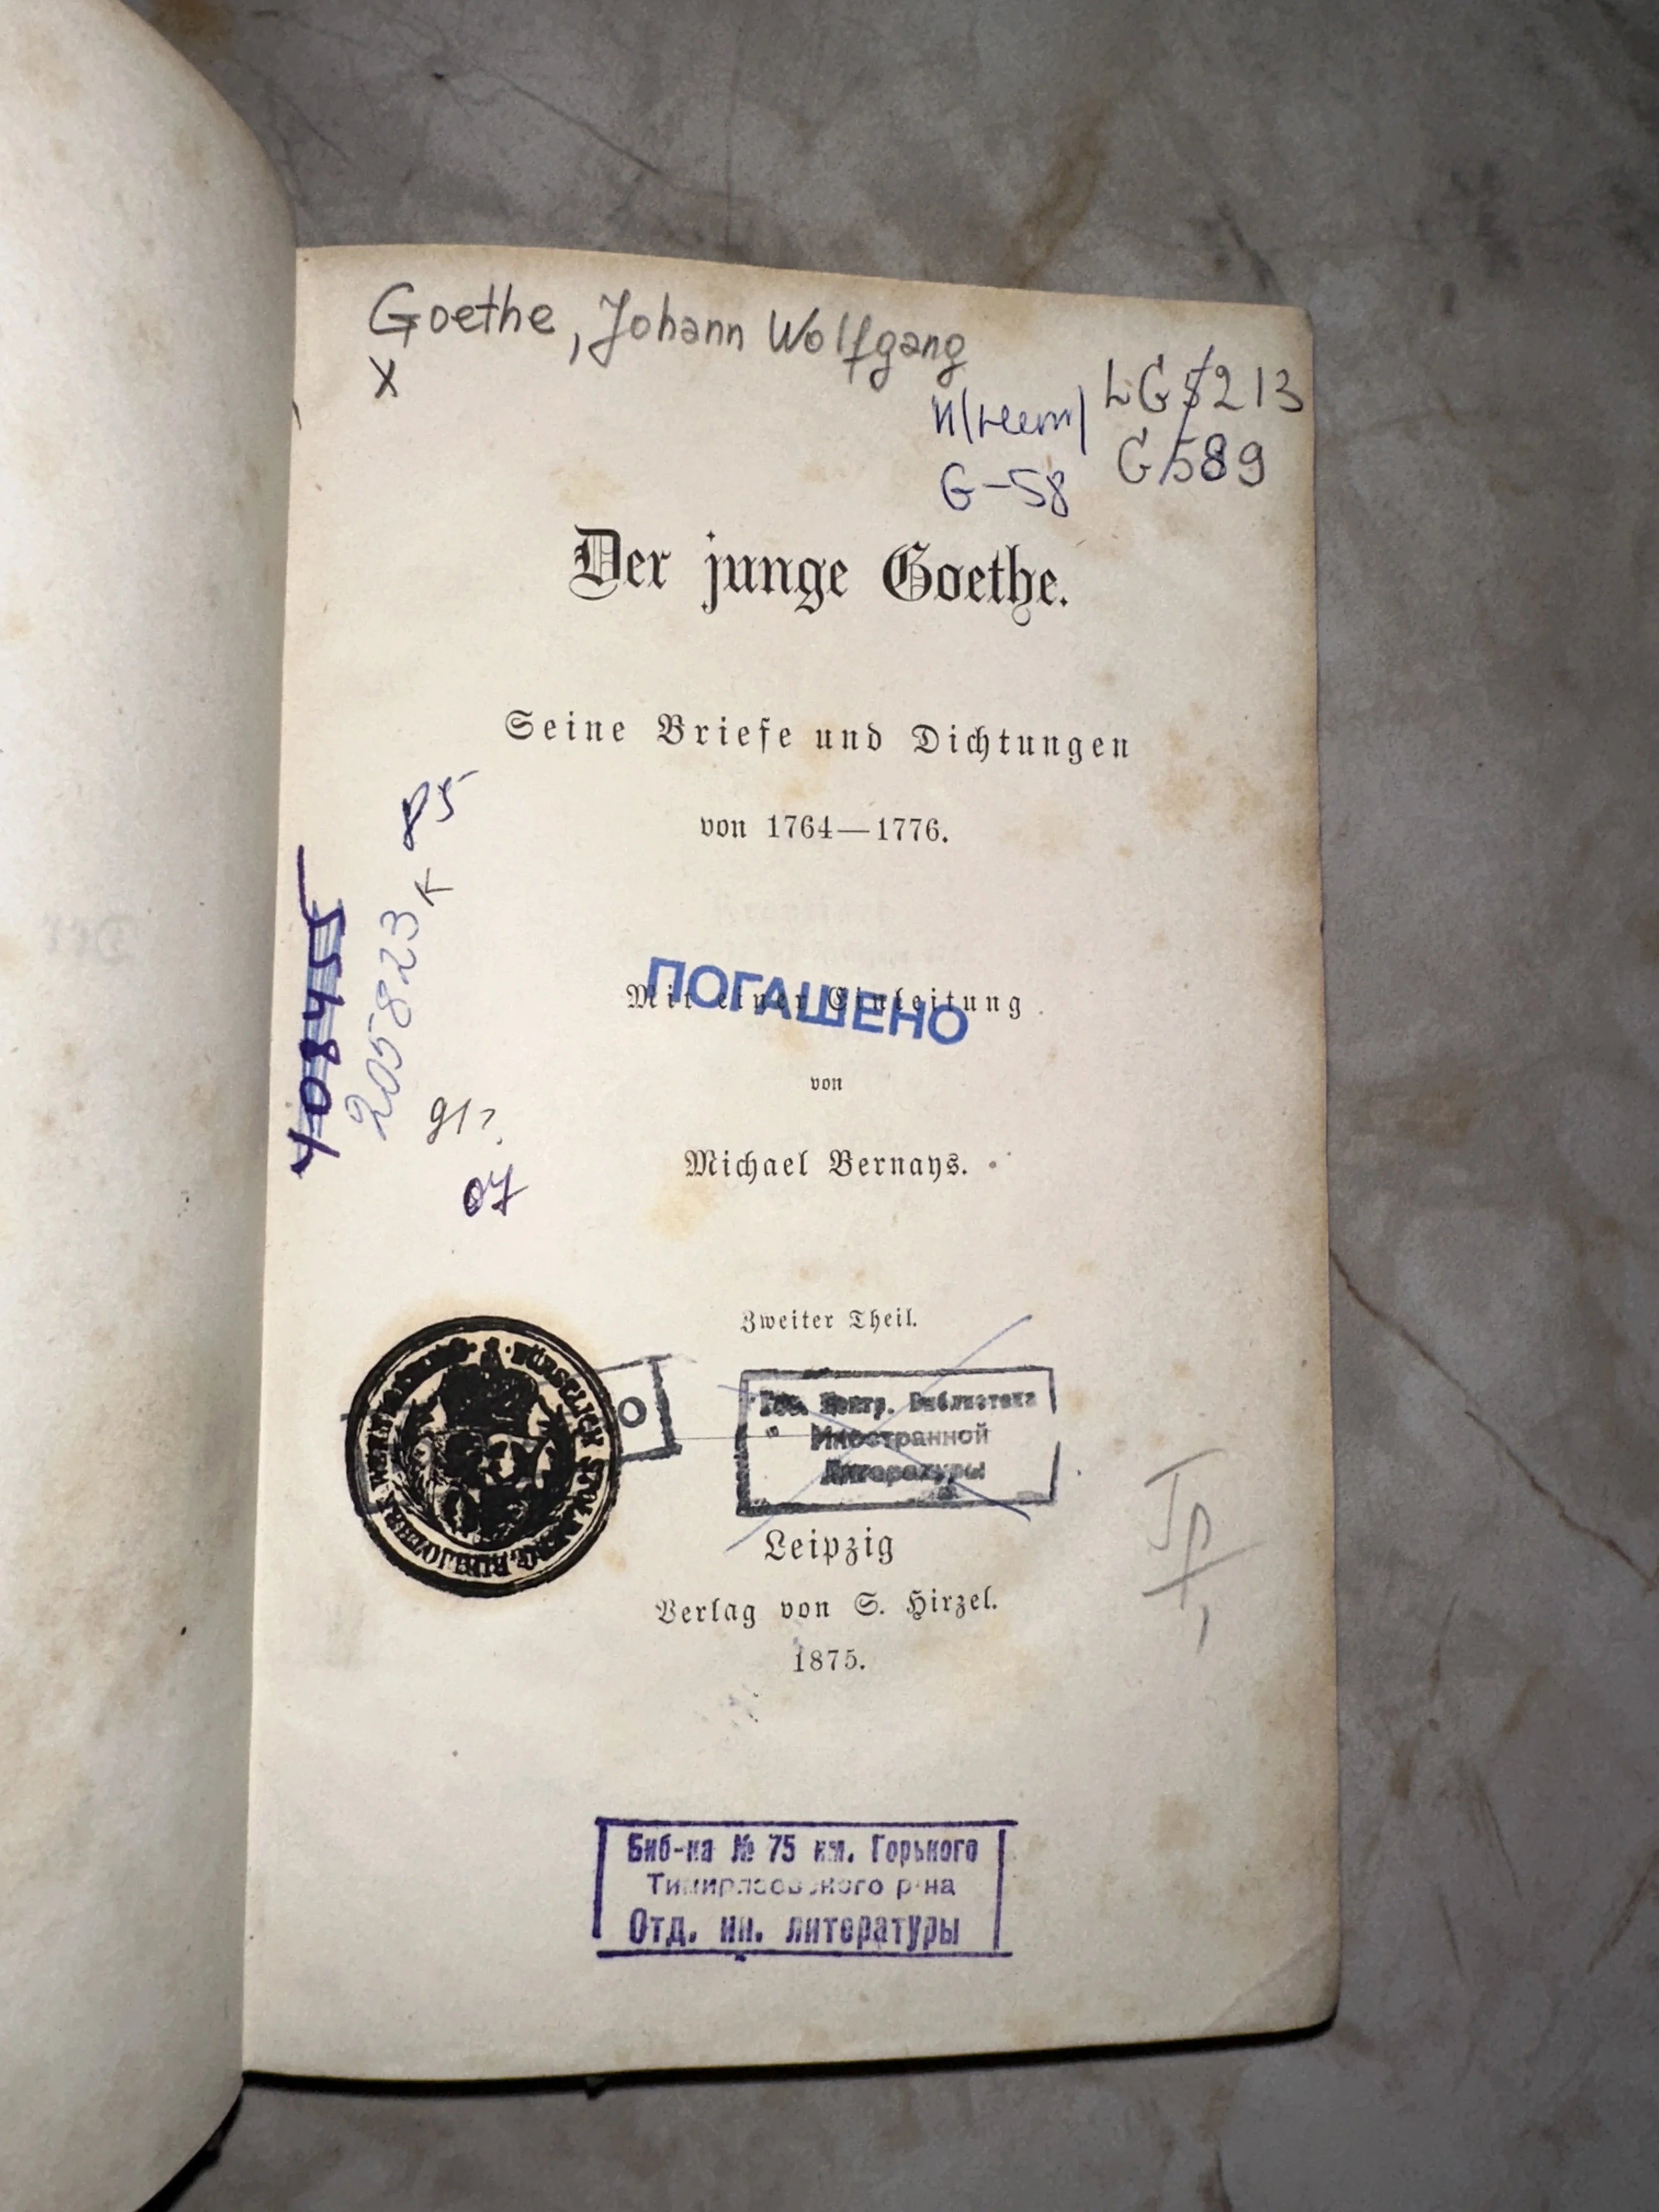 Goethe, Johann Wolfgang
X
LG 5213
И(нем)
G-58
G 589
Der junge Goethe.
Seine Briefe und Dichtungen
von 1764—1776.
85
к
40845
205823
91г.
07
Mit einer Einleitung
ПОГАШЕНО
von
Michael Bernays.
Zweiter Theil.
FÜRSTLICH STOLBERG. BIBLIOTHEK WERNIGERODE
О
Гос. Центр. Библиотека
Иностранной
Литературы
Leipzig
Verlag von S. Hirzel.
1875.
Биб-ка № 75 им. Горького
Тимирязевского р-на
Отд. ин. литературы
Der